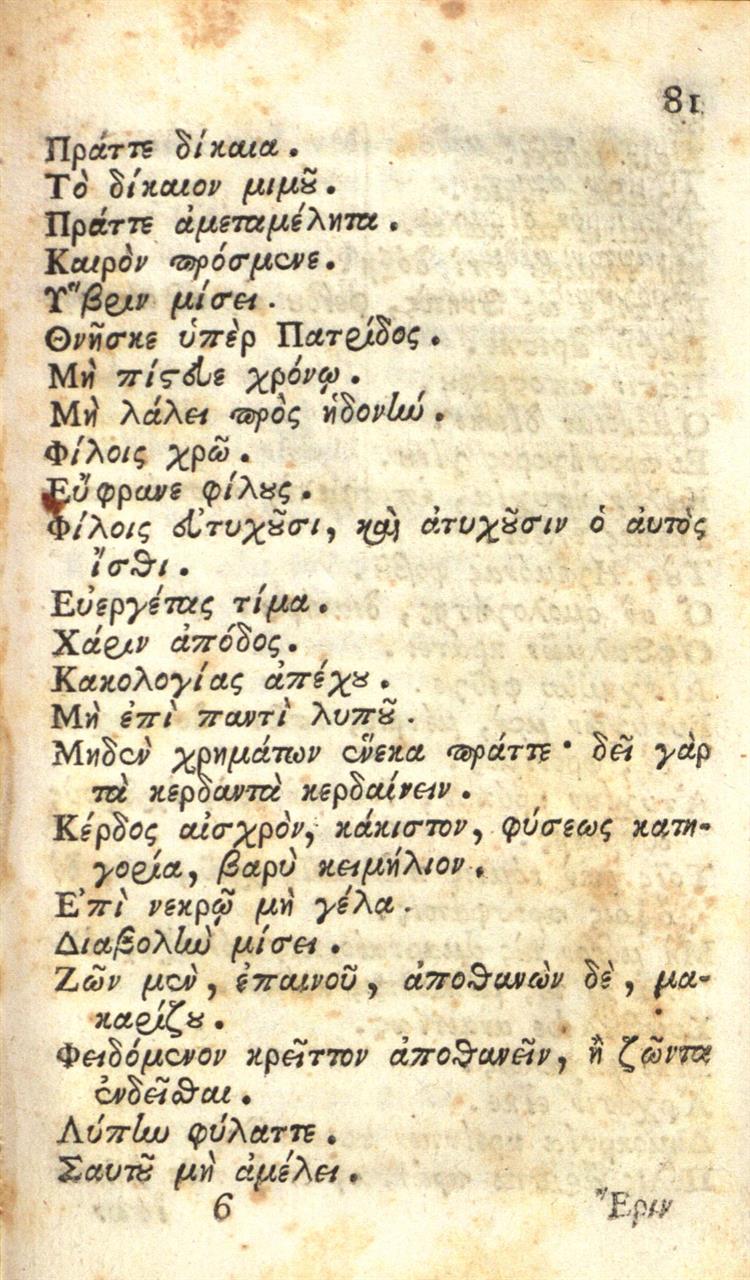 81
Πράττε δίκαια.
Τὸ δίκαιον μιμοῦ.
Πράττε ἀμεταμέλητα.
Καιρὸν πρόσμενε.
Υ῞βριν μίσει.
Θνῆσκε ὑπὲρ Πατρίδος.
Μὴ πίστευε χρόνῳ.
Μὴ λάλει πρὸς ἡδονήν.
Φίλοις χρῶ.
Εὔφρανε φίλους.
Φίλοις εὐτυχοῦσι, καὶ ἀτυχοῦσιν ὁ ἀυτὸς
ἴσθι.
Εὐεργέτας τίμα.
Χάριν ἀπόδος.
Κακολογίας ἀπέχου.
Μὴ ἐπὶ παντὶ λυποῦ.
Μηδὲν χρημάτων ἕνεκα πράττε· δεῖ γὰρ
τὰ κερδαντὰ κερδαίνειν.
Κέρδος αἰσχρὸν, κάκιστον, φύσεως κατη-
γορία, βαρὺ κειμήλιον.
Ε᾿πὶ νεκρῷ μὴ γέλα.
Διαβολὴν μίσει.
Ζῶν μὲν, ἐπαινοῦ, ἀποθανὼν δὲ, μα-
καρίζου.
Φειδόμενον κρεῖττον ἀποθανεῖν, ἢ ζῶντα
ἐνδεῖσθαι.
Λύπην φύλαττε.
Σαυτοῦ μὴ ἀμέλει.
6 Ἔριν